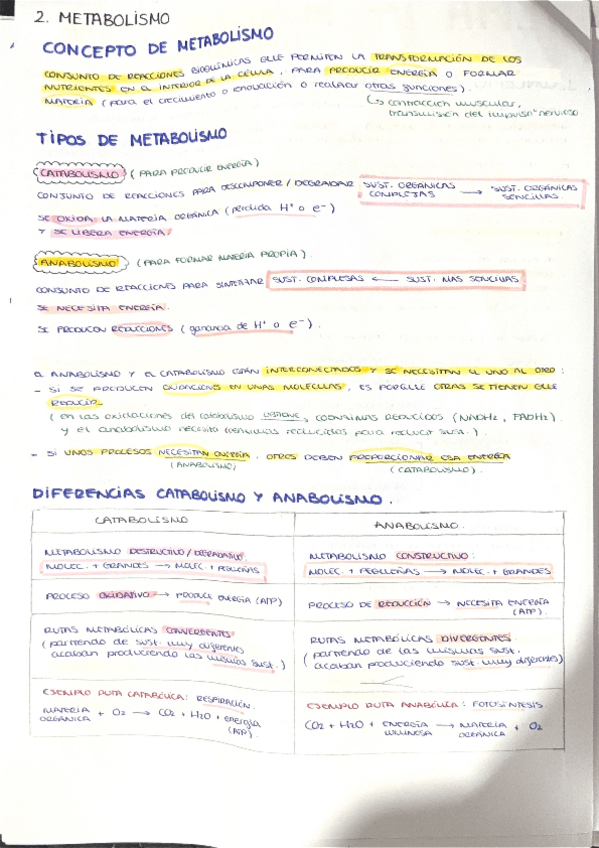 2. METABOLISMO
CONCEPTO DE METABOLISMO
CONJUNTO DE REACCIONES BIOQUÍMICAS QUE PERMITEN LA TRANSFORMACIÓN DE LOS
NUTRIENTES EN EL INTERIOR DE LA CÉLULA, PARA PRODUCIR ENERGÍA O FORMAR
MATERIA (para el crecimiento o renovación o realizar otras funciones).
↳ contracción muscular,
transmisión del impulso nervioso
TIPOS DE METABOLISMO
CATABOLISMO (PARA PRODUCIR ENERGÍA)
CONJUNTO DE REACCIONES PARA DESCOMPONER / DEGRADAR SUST. ORGÁNICAS COMPLEJAS → SUST. ORGÁNICAS SENCILLAS.
SE OXIDA LA MATERIA ORGÁNICA (pérdida H⁺ o e⁻)
Y SE LIBERA ENERGÍA.
ANABOLISMO (PARA FORMAR MATERIA PROPIA).
CONJUNTO DE REACCIONES PARA SINTETIZAR SUST. COMPLEJAS ← SUST. MAS SENCILLAS
SE NECESITA ENERGÍA.
SE PRODUCEN REDUCCIONES (ganancia de H⁺ o e⁻).
EL ANABOLISMO Y EL CATABOLISMO ESTÁN INTERCONECTADOS Y SE NECESITAN EL UNO AL OTRO:
- SI SE PRODUCEN OXIDACIONES EN UNAS MOLECULAS, ES PORQUE OTRAS SE TIENEN QUE
REDUCIR.
(en las oxidaciones del catabolismo obtiene, coenzimas REDUCIDOS (NADH₂, FADH₂).
y el anabolismo necesita reducidos para reducir sust.).
- SI UNOS PROCESOS NECESITAN ENERGÍA, OTROS DEBEN PROPORCIONAR ESA ENERGÍA
(ANABOLISMO) (CATABOLISMO).
DIFERENCIAS CATABOLISMO Y ANABOLISMO.
CATABOLISMO
METABOLISMO DESTRUCTIVO / DEGRADATIVO.
MOLEC. + GRANDES → MOLEC. + PEQUEÑAS
PROCESO OXIDATIVO → PRODUCE ENERGÍA (ATP)
RUTAS METABÓLICAS CONVERGENTES
(partiendo de sust. muy diferentes
acaban produciendo las mismas sust.)
EJEMPLO RUTA CATABÓLICA: RESPIRACIÓN.
MATERIA ORGÁNICA + O₂ → CO₂ + H₂O + energía
(ATP).
ANABOLISMO.
METABOLISMO CONSTRUCTIVO:
MOLEC. + PEQUEÑAS → MOLEC. + GRANDES
PROCESO DE REDUCCIÓN → NECESITA ENERGÍA
(ATP).
RUTAS METABÓLICAS DIVERGENTES
(partiendo de las mismas sust.
acaban produciendo sust. muy diferentes)
EJEMPLO RUTA ANABÓLICA: FOTOSÍNTESIS.
CO₂ + H₂O + ENERGÍA LUMINOSA → MATERIA ORGÁNICA + O₂